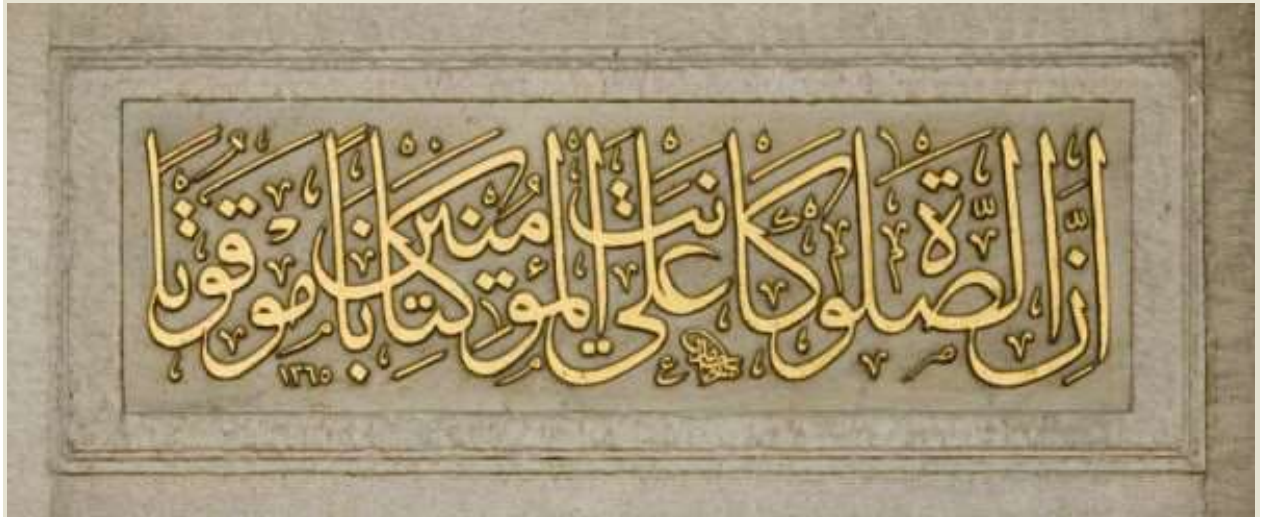 إن الصلوة كانت على المؤمنين كتابا موقوتا
١٣٦٥